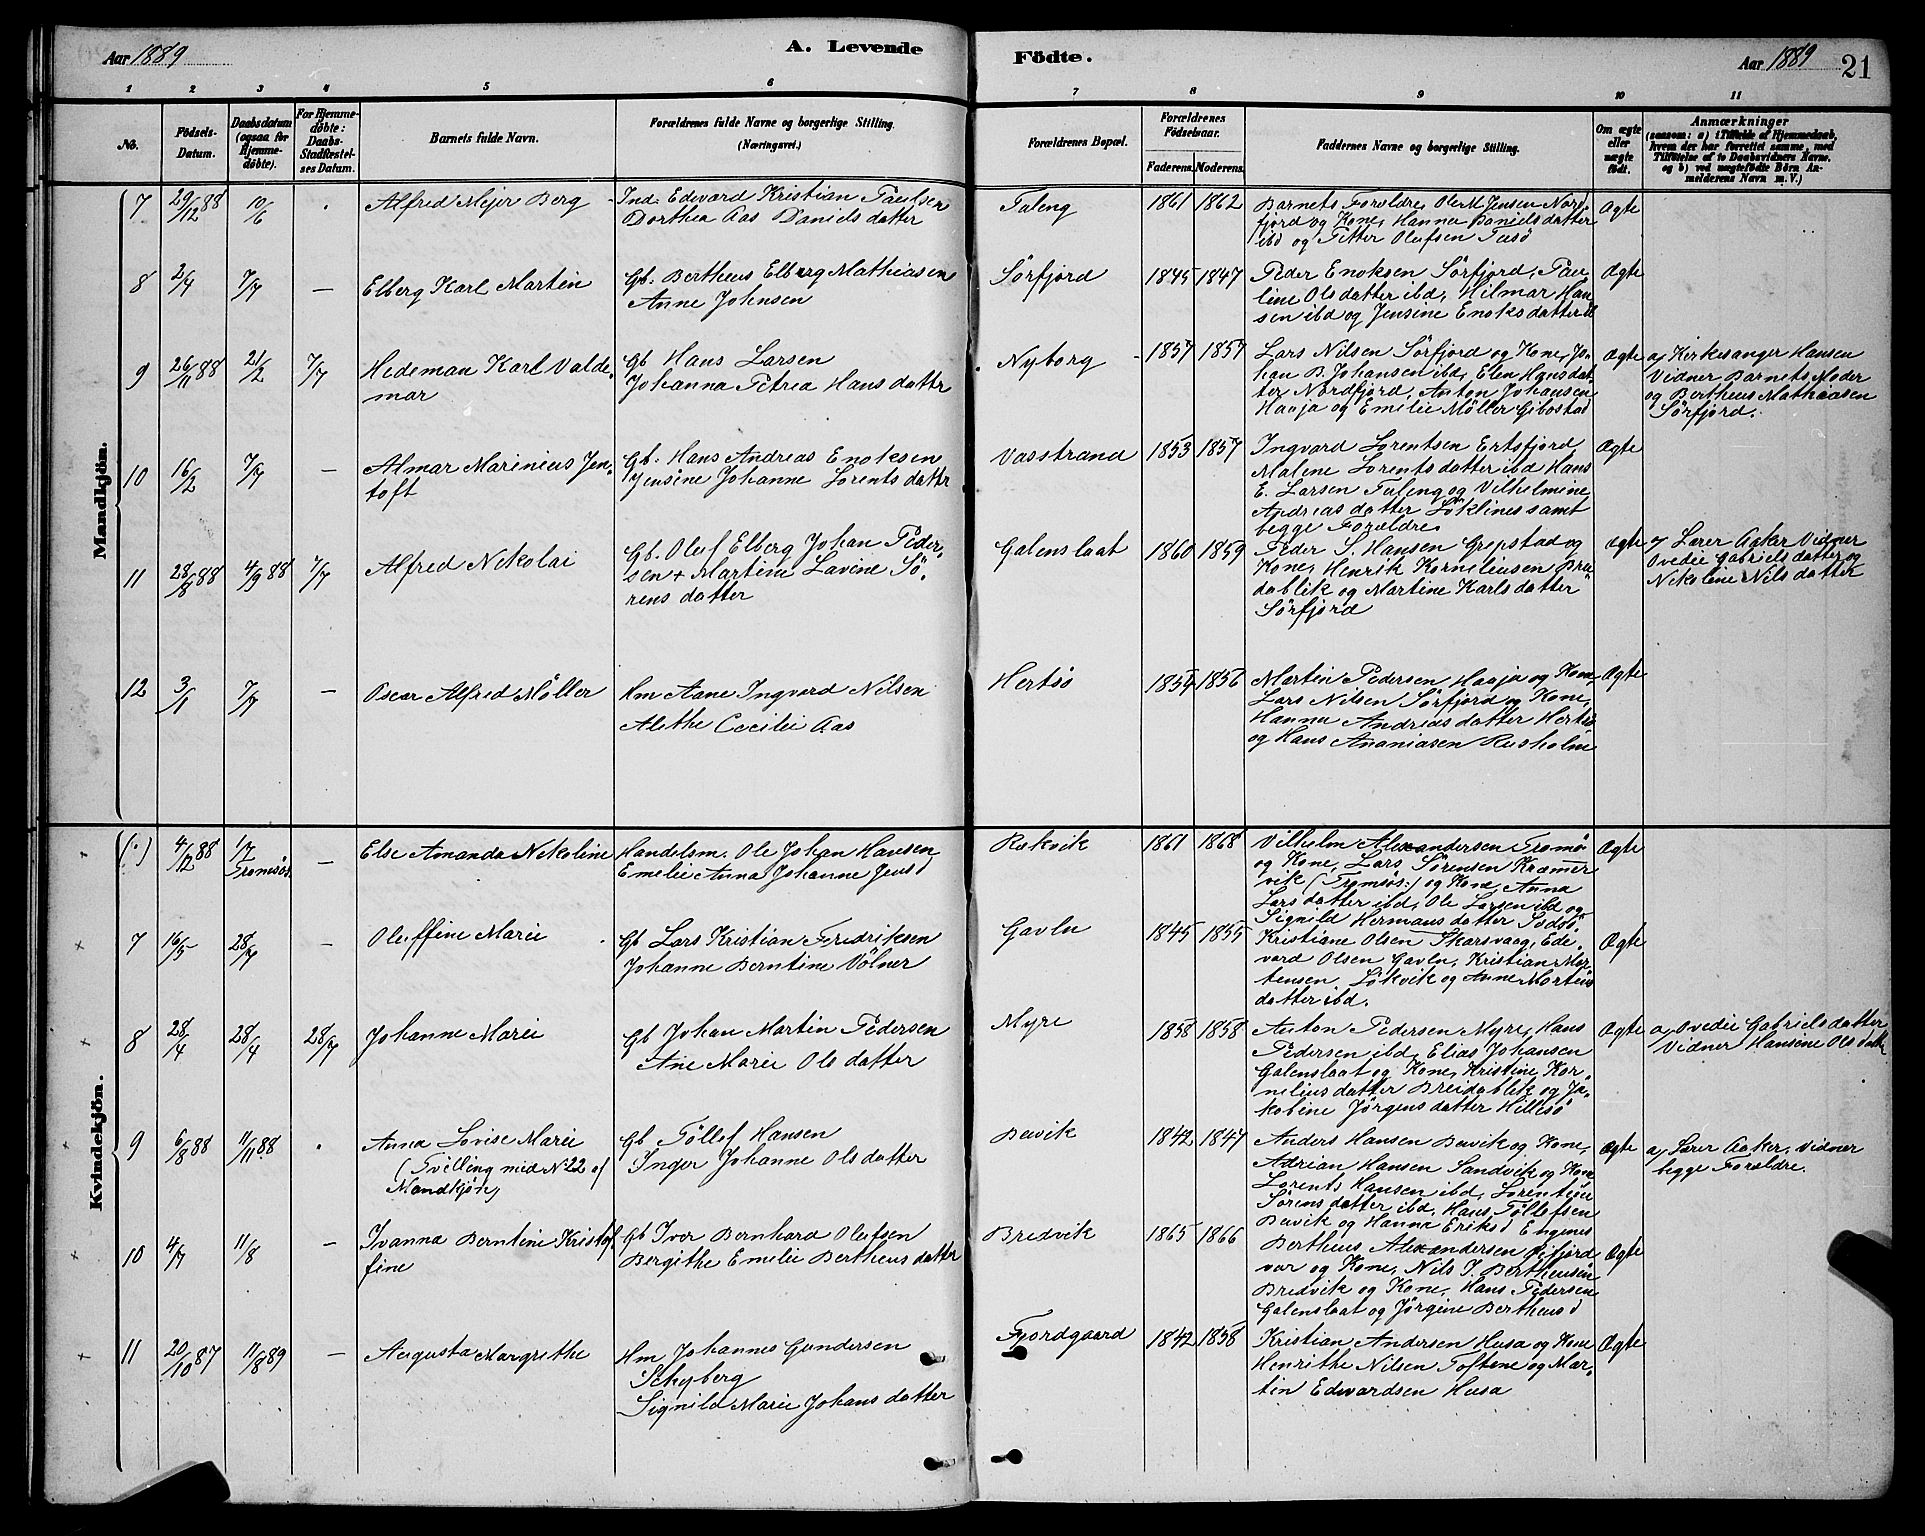 Aar 1889
A. Levende
Födte.
Aar 1889
21
1 2 3 4 5 6 7 8 9 10 11
No.
Födsels-
Datum.
Daabsdatum
(ogsaa for
Hjemme-
döbte).
For Hjemme-
döbte:
Daabs-
Stadfæstel-
ses Datum.
Barnets fulde Navn.
Forældrenes fulde Navne og borgerlige Stilling.
(Næringsvei.)
Forældrenes Bopæl.
Forældrenes
Födselsaar.
Faderens. Moderens.
Faddernes Navne og borgerlige Stilling.
Om ægte
eller
uægte
födt.
Anmærkninger
(saasom: a) i Tilfælde af Hjemmedaab,
hvem der har forrettet samme, med
Tilföielse af to Daabsvidners Navne,
og b) ved uægtefödte Börn An-
melderens Navn m. V.)
Mandkjön.
7 29/12 88 10/6 Alfred Mejer Berg
Ind. Edevard Kristian Paulsen
Dorthea Aas Daniels datter
Faleng 1861 1862
Barnets Forældre, Ole M Jensen Nord-
fjord og Kone, Hanna Daniels datter
ibd og Petter Olufsen Tusö
Ægte
8 2/4 7/7 — Elberg Karl Martin
Gb. Bertheus Elberg Mathiasen
Anne Johnsen
Sörfjord 1845 1847
Peder Enoksen Sörfjord, Pau-
line Olsdatter ibd, Hilmar Han
sen ibd og Jensine Enoksdatter ib
Ægte
9 26/11 88 21/2 7/7 Hedeman Karl Valde-
mar
Gb Hans Larsen
Johanna Petrea Hans datter
Nyborg 1857 1857
Lars Nilsen Sörfjord og Kone, Jo-
han B. Johansen ibd, Elen Hansdat-
ter Nordfjord, Anton Johansen
Haaja og Emilie Möller Gibostad
Ægte
a, Kirkesanger Hansen
Vidner Barnets Moder
og Bertheus Mathiasen
Sörfjord.
10 16/2 7/7 — Almar Marinius Jen-
toft
Gb. Hans Andreas Enoksen
Jensine Johanne Lorents datter
Vasstrand 1853 1857
Ingvard Lorentsen Ertsfjord
Malene Lorentsdatter ibd Hans
E. Larsen Faleng og Vilhelmine
Andreas datter Löklines samt
begge Forældre
Ægte
11 28/8 88 4/9 88 7/7 Alfred Nikolai
Gb. Oluf Elberg Johan Peder-
sen + Martine Lavine Sö-
rens datter
Galenslaat 1860 1859
Peder S. Hansen Grepstad og
Kone, Henrik Korneliusen Brei
dablik og Martine Karls datter
Sörfjord
Ægte
a, Lærer Aaker Vidner
Ovedie Gabriels datter og
Nikoline Nilsdatter
12 3/1 7/7 — Oscar Alfred Möller
Hm Aane Ingvard Nilsen
Alethe Cecilie Aas
Hertsö 1854 1856
Martin Pedersen Haaja og Kone
Lars Nilsen Sörfjord og Kone,
Hanna Andreas datter Hertsö
og Hans Ananiasen Rusholm
Ægte
Kvindekjön.
(:) 4/12 88 Tromsöe — Else Amanda Nikoline
Handelsm. Ole Johan Hansen
Emelie Anna Johanne Jens d
Rækvik 1861 1868
Vilhelm Alexandersen Tromsö
og Kone, Lars Sörensen Kræmer
vik (Tromsös:) og Kone, Anna
Lars datter ibd, Ole Larsen ibd og
Signild Hermans datter
Ægte
7 16/5 28/7 — Oluffine Marie
Gb Lars Kristian Fredriksen
Johanne Berntine Völner
Gavln 1845 1855
Kristiane Olsen Skarsvaag, Ede-
vard Olsen Gavln, Kristian Mor
tensen Lökvik og Anne Mortens
datter ibd.
Ægte
8 28/4 28/4 28/7 Johanne Marie
Gb Johan Martin Pedersen
Ane Marie Ols datter
Myre 1858 1858
Anton Pedersen Myre, Hans
Pedersen ibd, Elias Johansen
Galenslaat og Kone, Kristine Kor-
nelius datter Breidablik og Ja-
kobine Jörgens datter Hillesö
Ægte
a, Ovedie Gabriels datter,
Vidner Hansine Ols datter
9 6/8 88 11/11 88. Anna Lovise Marie
(Tvilling med N 22 af
Mandkjön)
Gb Töllef Hansen
Inger Johanne Olsdatter
Bervik 1842 1847
Anders Hansen Bervik og Kone,
Adrian Hansen Sandvik og Kone
Lorents Hansen ibd, Lorentine
Sörens datter ibd, Hans Töllefsen
Bervik og Hanna Eriks d Engenes
Ægte
a, Lærer Aaker, Vidner
begge Forældre.
10 4/7 11/8 — Ivanna Berntine Kristof-
fine
Gb Iver Bernhard Olufsen
Bergithe Emelie Bertheus datter
Bredvik 1865 1866
Bertheus Alexandersen Gifjord
vær og Kone, Nils J. Bertheusen
Bredvik og Kone, Hans Pedersen
Galenslaat og Jörgine Bertheus d
Ægte
11 20/10 87 11/8 89 — Augusta Margrethe
Hm Johannes Gundersen
Schyberg
Signild Marie Johans datter
Fjordgaard 1842 1858
Kristian Andersen Husa og Kone
Henrithe Nilsen Toftene og Mar-
tin Edvardsen Husa
Ægte